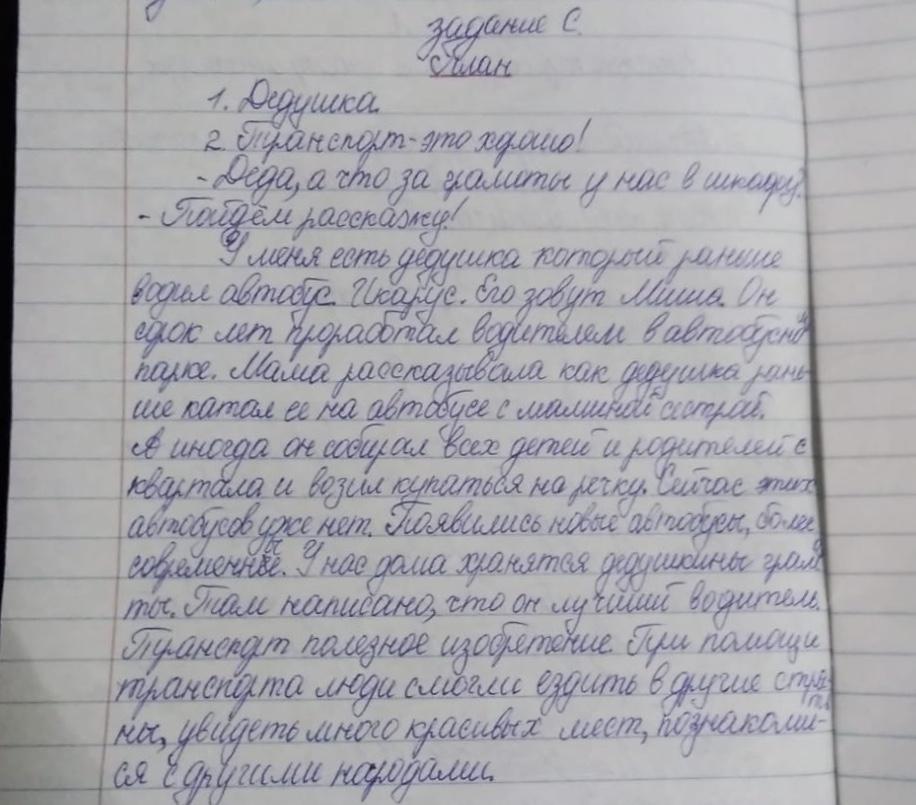 задание С.
План
1. Дедушка.
2. Транспорт-это хорошо!
- Деда, а что за грамоты у нас в шкафу?
- Пойдём расскажу!
У меня есть дедушка который раньше
водил автобус. Икарус. Его зовут Миша. Он
сорок лет проработал водителем в автобусном
парке. Мама рассказывала как дедушка рань
ше катал её на автобусе с маминой сестрой.
А иногда он собирал всех детей и родителей с
квартала и возил купаться на речку. Сейчас этих
автобусов уже нет. Появились новые автобусы, более
современные. У нас дома хранятся дедушкины грамо
ты. Там написано, что он лучший водитель.
Транспорт полезное изобретение. При помощи
транспорта люди смогли ездить в другие стра-
ны, увидеть много красивых мест, познакомить-
ся с другими народами.